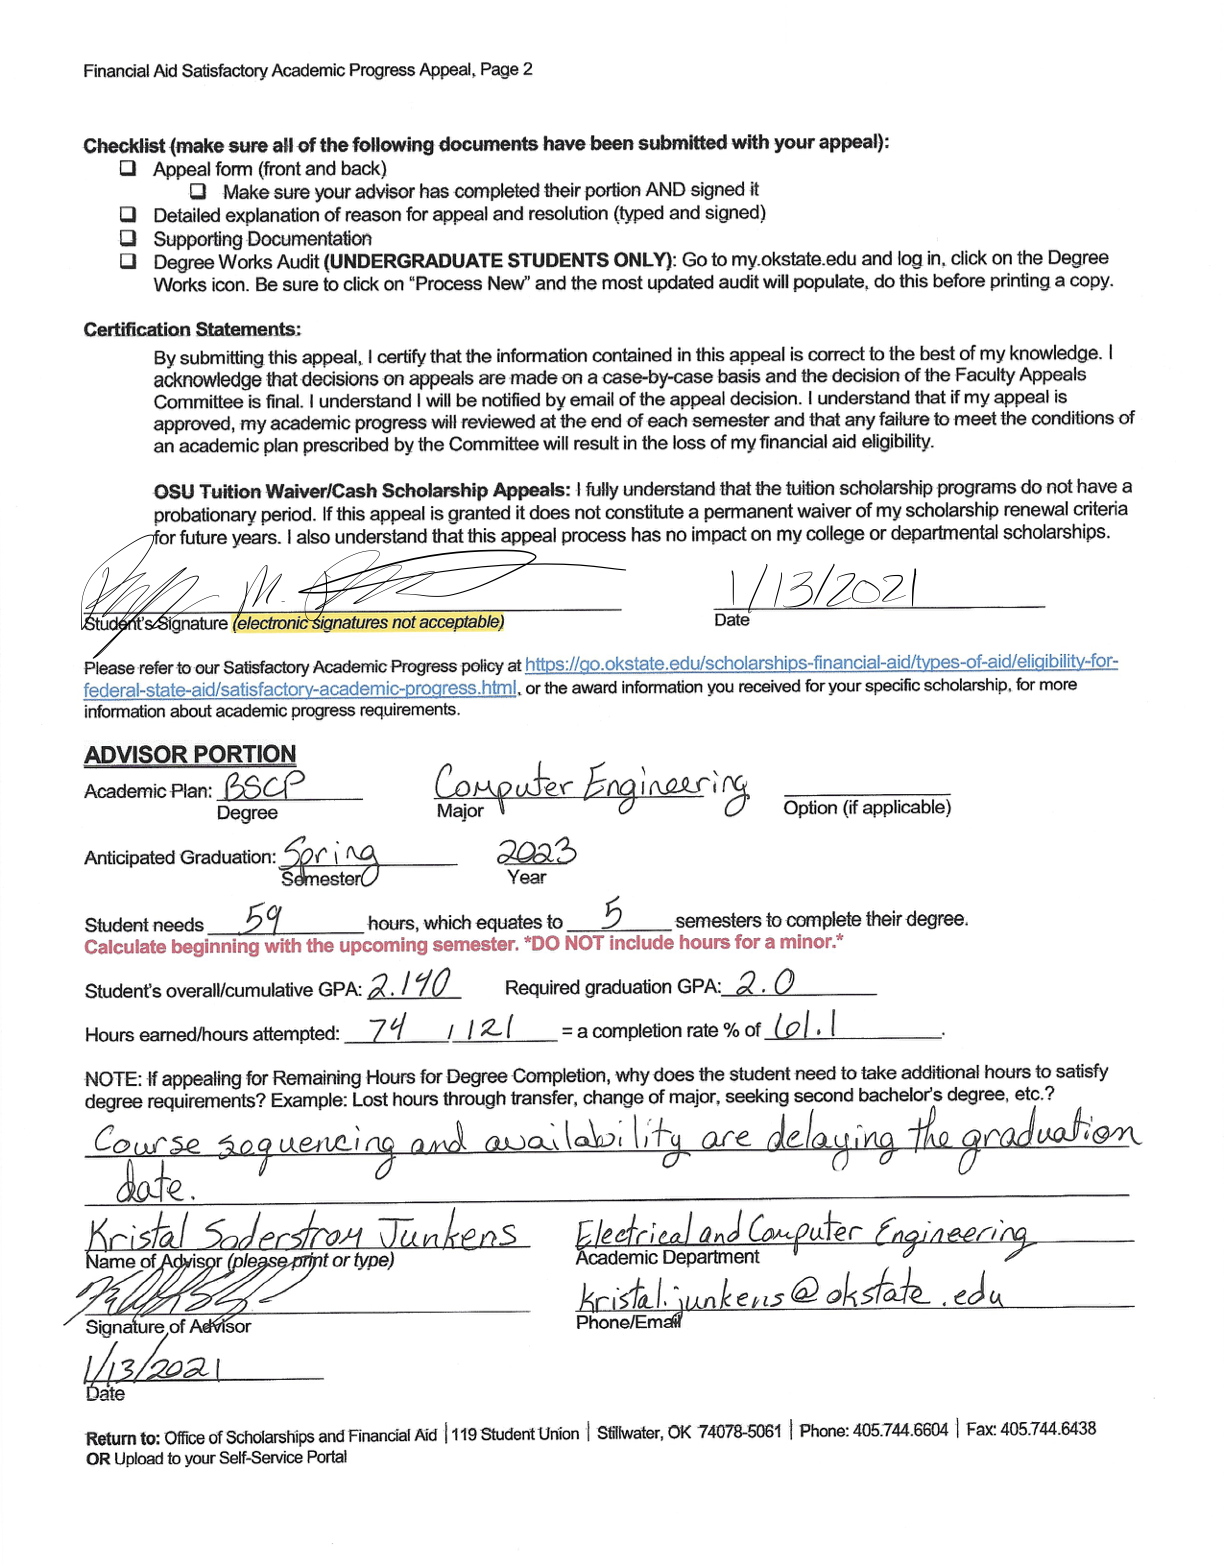 Financial Aid Satisfactory Academic Progress Appeal, Page 2
Checklist (make sure all of the following documents have been submitted with your appeal):
❑ Appeal form (front and back)
❑ Make sure your advisor has completed their portion AND signed it
❑ Detailed explanation of reason for appeal and resolution (typed and signed)
❑ Supporting Documentation
❑ Degree Works Audit (UNDERGRADUATE STUDENTS ONLY): Go to my.okstate.edu and log in, click on the Degree
Works icon. Be sure to click on “Process New” and the most updated audit will populate, do this before printing a copy.
Certification Statements:
By submitting this appeal, I certify that the information contained in this appeal is correct to the best of my knowledge. I
acknowledge that decisions on appeals are made on a case-by-case basis and the decision of the Faculty Appeals
Committee is final. I understand I will be notified by email of the appeal decision. I understand that if my appeal is
approved, my academic progress will reviewed at the end of each semester and that any failure to meet the conditions of
an academic plan prescribed by the Committee will result in the loss of my financial aid eligibility.
OSU Tuition Waiver/Cash Scholarship Appeals: I fully understand that the tuition scholarship programs do not have a
probationary period. If this appeal is granted it does not constitute a permanent waiver of my scholarship renewal criteria
for future years. I also understand that this appeal process has no impact on my college or departmental scholarships.
M. 1/13/2021
Student's Signature (electronic signatures not acceptable) Date
Please refer to our Satisfactory Academic Progress policy at https://go.okstate.edu/scholarships-financial-aid/types-of-aid/eligibility-for-
federal-state-aid/satisfactory-academic-progress.html, or the award information you received for your specific scholarship, for more
information about academic progress requirements.
ADVISOR PORTION
Academic Plan: BSCP Computer Engineering
Degree Major Option (if applicable)
Anticipated Graduation: Spring 2023
Semester Year
Student needs 59 hours, which equates to 5 semesters to complete their degree.
Calculate beginning with the upcoming semester. *DO NOT include hours for a minor.*
Student's overall/cumulative GPA: 2.140 Required graduation GPA: 2.0
Hours earned/hours attempted: 74 / 121 = a completion rate % of 61.1.
NOTE: If appealing for Remaining Hours for Degree Completion, why does the student need to take additional hours to satisfy
degree requirements? Example: Lost hours through transfer, change of major, seeking second bachelor's degree, etc.?
Course sequencing and availability are delaying the graduation
date.
Kristal Soderstrom Junkens Electrical and Computer Engineering
Name of Advisor (please print or type) Academic Department
kristal.junkens@okstate.edu
Signature of Advisor Phone/Email
1/13/2021
Date
Return to: Office of Scholarships and Financial Aid | 119 Student Union | Stillwater, OK 74078-5061 | Phone: 405.744.6604 | Fax: 405.744.6438
OR Upload to your Self-Service Portal